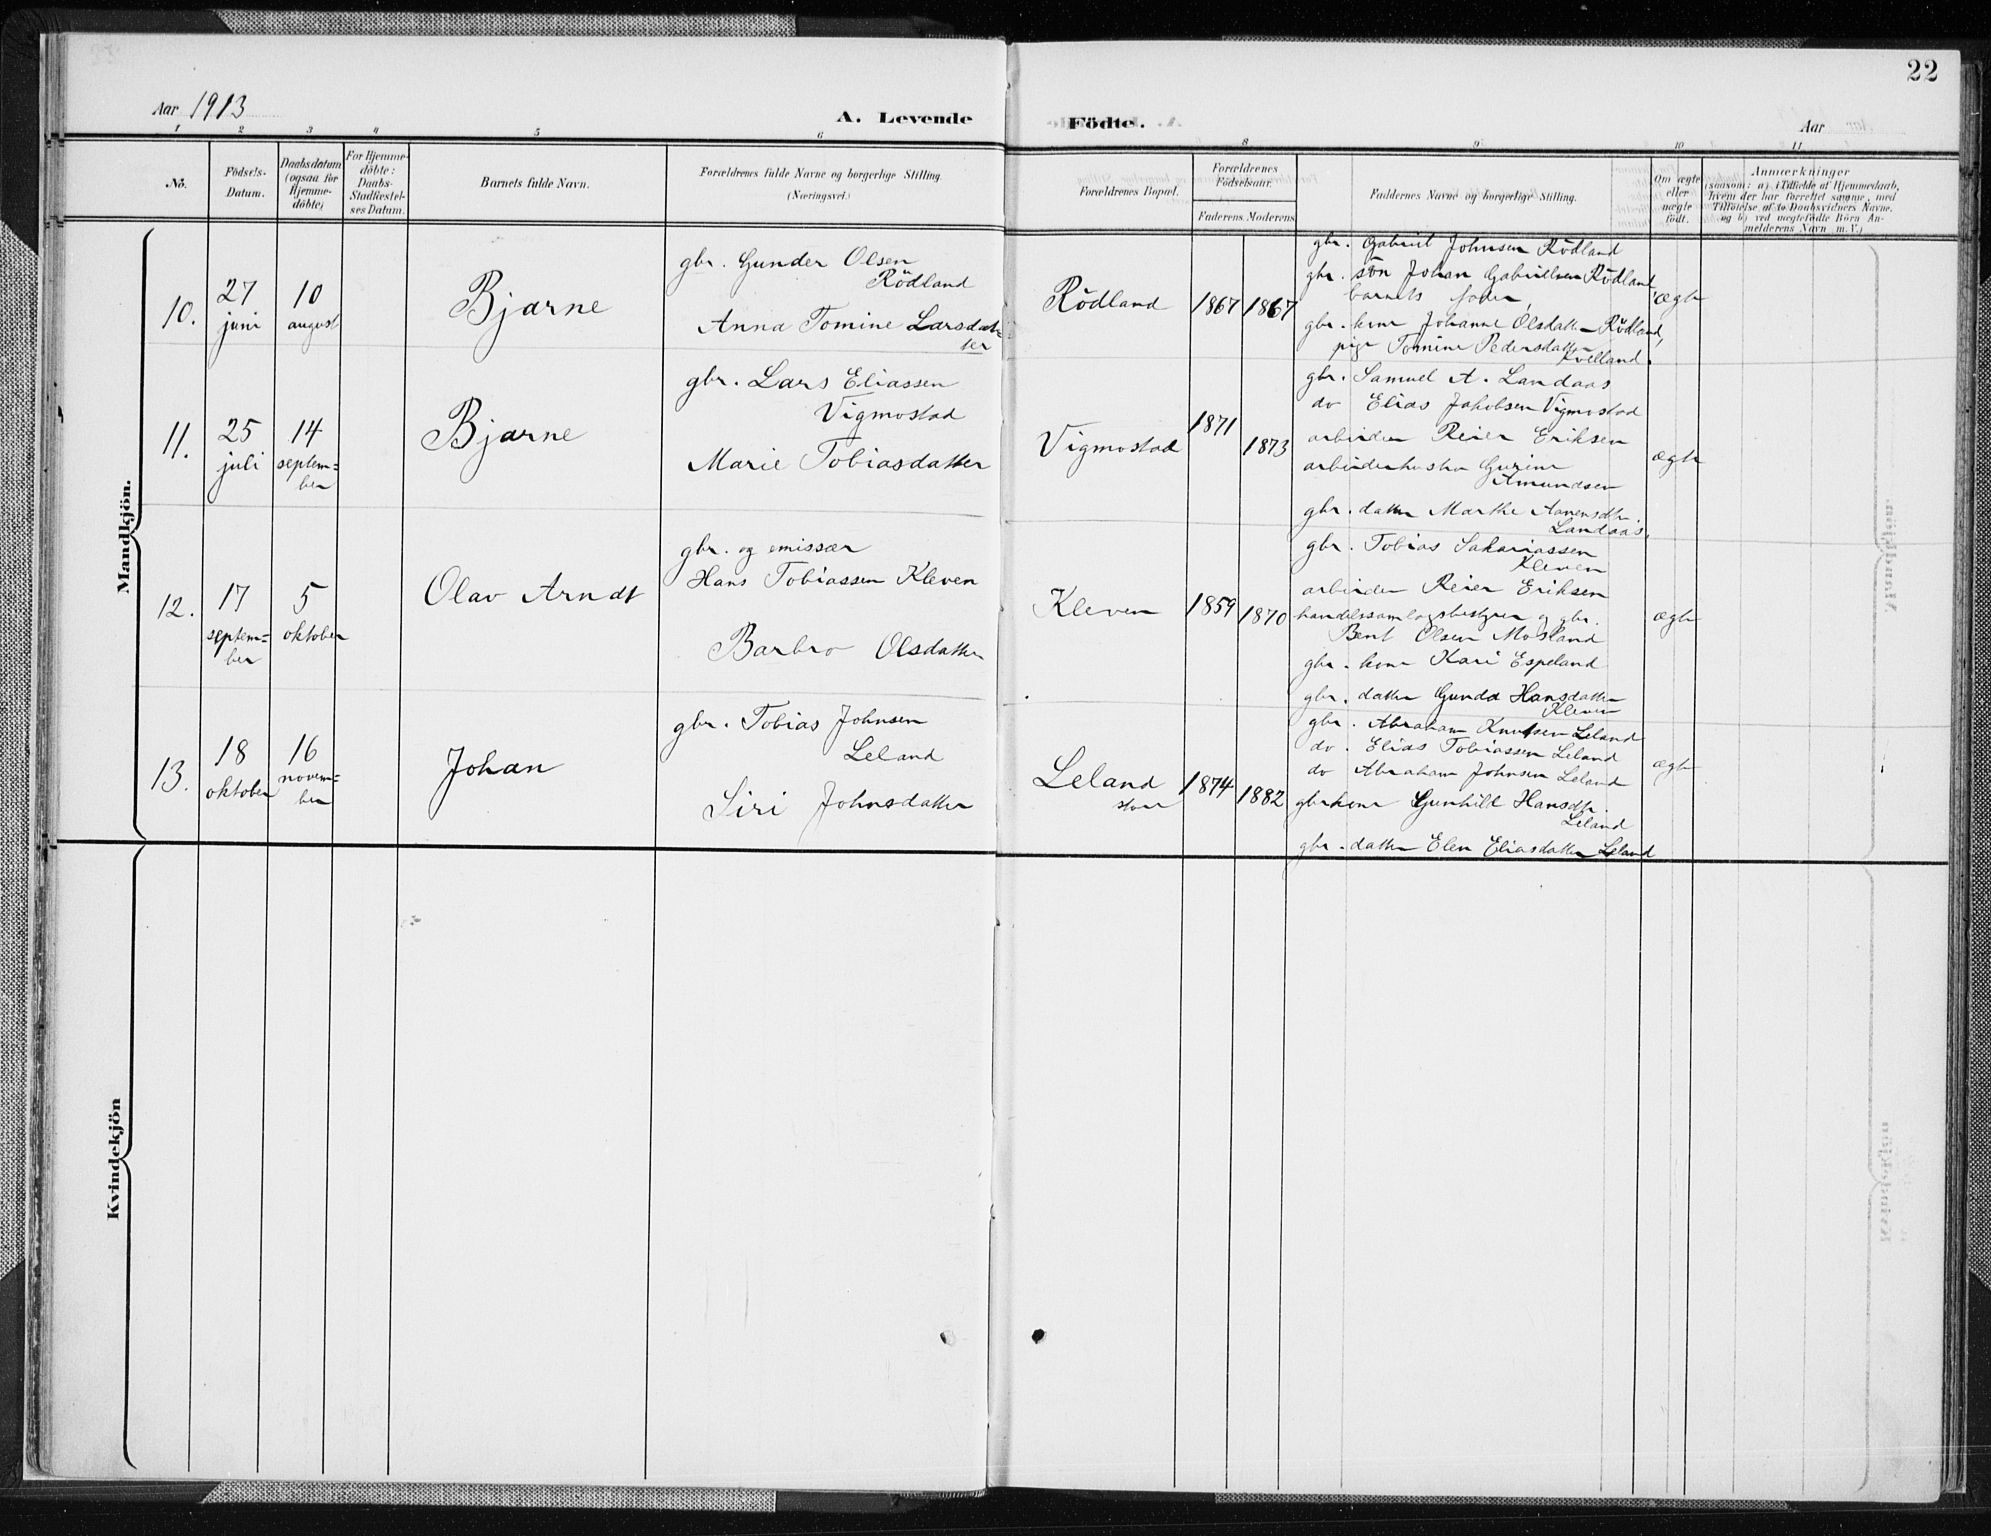 22
Aar 1913
A. Levende
Födte.
Aar
1 2 3 4 5 6 8 9 10 11
No.
Födsels-
Datum.
Daabsdatum
(ogsaa for
Hjemme-
döbte)
For Hjemme-
döbte:
Daabs-
Stadfæstel-
ses Datum.
Barnets fulde Navn.
Forældrenes fulde Navne og borgerlige Stilling.
(Næringsvei.)
Forældrenes Bopæl.
Forældrenes
Födselsaar.
Faderens. Moderens.
Faddernes Navne og borgerlige Stilling.
Om ægte
eller
uægte
födt.
Anmærkninger
(saasom: a) i Tilfælde af Hjemmedaab,
hvem der har forrettet samme, med
Tilföielse af to Daabsvidners Navne.
og b) ved uægtefödte Börn An-
melderens Navn m. V.)
Mandkjön.
10.
27
juni
10
august
Bjarne
gbr. Gunder Olsen
Rödland
Anna Tomine Larsdat-
ter
Rödland
1867
1867
gbr. Gabriel Johnsen Rödland
gbr. sön Johan Gabrielsen Rödland,
barnets fader,
gbr. kone Johanne Olsdatter Rödland,
pige Tomine Pedersdatter
Kvelland.
ægte
11.
25
juli
14
septem=
ber
Bjarne
gbr. Lars Eliassen
Vigmostad
Marie Tobiasdatter
Vigmostad
1871
1873
gbr. Samuel A. Landaas
do Elias Jakobsen Vigmostad
arbeider Reier Eriksen
arbeiderhustru Gurine
Amundsen
gbr. datter Marthe Aanensdtr.
Landaas.
ægte
12.
17
septem=
ber
5
oktober
Olav Arndt
gbr. og emissær
Hans Tobiassen Kleven
Barbro Olsdatter
Kleven
1859
1870
gbr. Tobias Sakariassen
Kleven
arbeider Reier Eriksen
handelssamlagsbestyrer og gbr.
Bent Olsen Mosland
gbr. kone Kari Espeland
gbr. datter Gunda Hansdatter
Kleven
ægte
13.
18
oktober
16
novem=
ber
Johan
gbr. Tobias Johnsen
Leland
Siri Johnsdatter
Leland
store
1874
1882
gbr. Abraham Knutsen Leland
do. Elias Tobiassen Leland
do Abraham Johnsen Leland
gbrkone Gunhild Hansdtr.
Leland
gbr. datter Elen Eliasdatter Leland
ægte
Kvindekjön